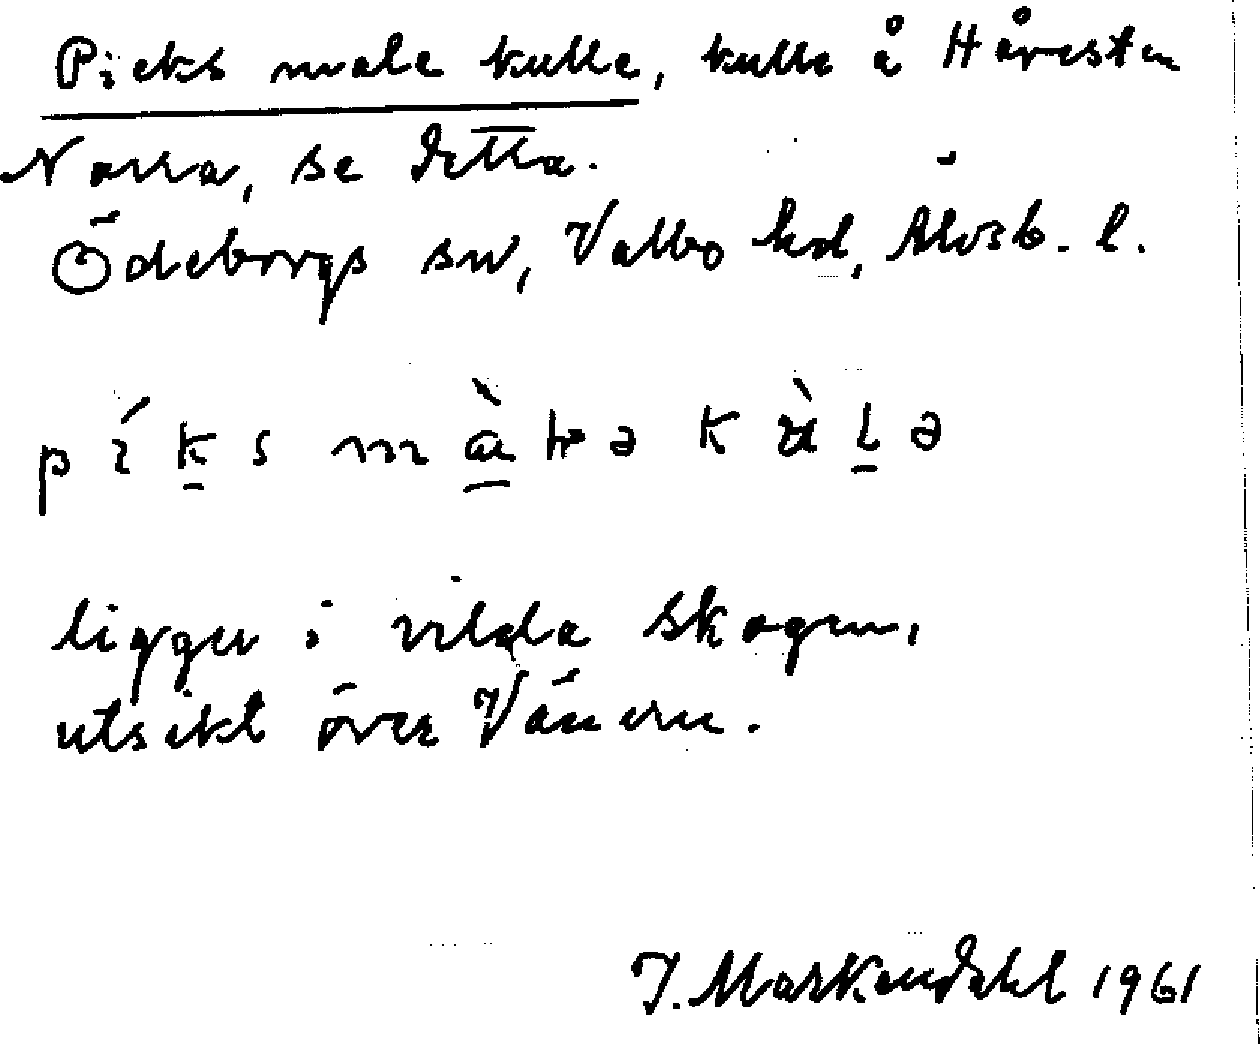 Pieks male kulle, kulle å Håvesten
Norra, se detta.
Ödeborgs sn, Valbo hd, Älvsb. l.
ligger i vilda skogen,
utsikt över Vänern.
J. Markendahl 1961